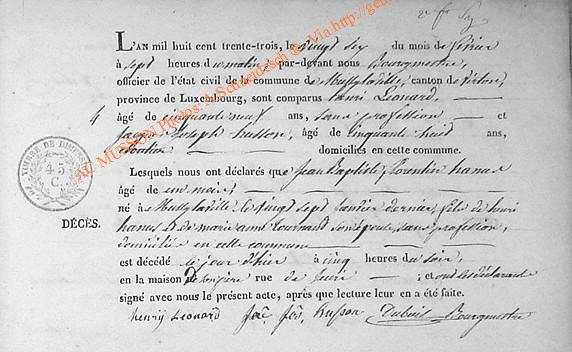 2e fe
L'AN mil huit cent trente-trois, le vingt six du mois de février
à sept heures du matin par-devant nous Bourgmestre,
officier de l'état civil de la commune de Mussylaville, canton de Virton,
province de Luxembourg, sont comparus henri Leonard,
4 âgé de cinquante neuf ans, sans profession et
jacques Joseph husson, âgé de cinquante huit ans,
domiciliés en cette commune.
Lesquels nous ont déclarés que Jean Baptiste florentin hanus
âgé de un mois
né à Mussylaville le vingt sept janvier dernier, fils de henri
DÉCÈS. hanus & de marie anne tournand son épouse, sans profession,
domiciliés en cette commune
est décédé le jour d'hier à cinq heures du soir,
en la maison de son père rue de ; et ont les déclarant
signé avec nous le présent acte, après que lecture leur en a été faite.
henrij Leonard jos husson Dubois Bourgmestre
TIMBRE DE DIMENSION
45
C.
AC MUSSON Photos: A. Schneidesch @ Via http://gen